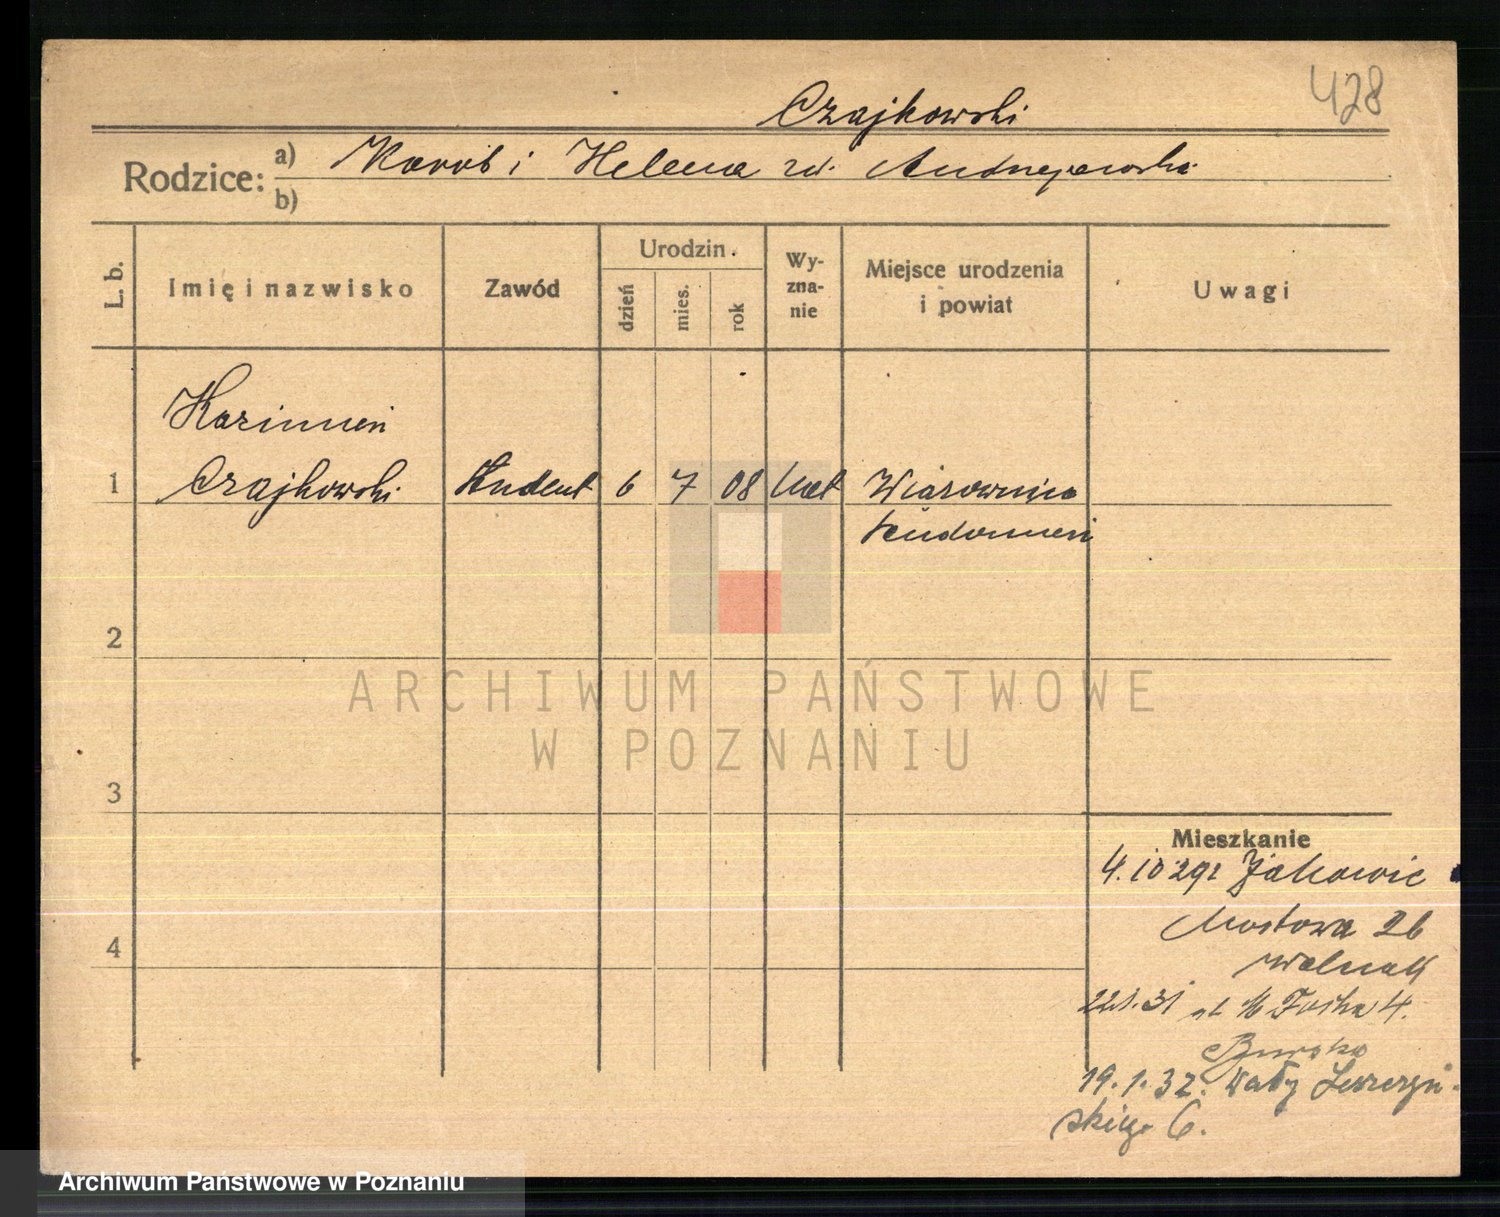 428
Czajkowski
Rodzice: a) Karol i Helena zd. Andrzejewska
b)
L. b.
Imię i nazwisko
Zawód
Urodzin.
dzień
mies.
rok
Wy-
zna-
nie
Miejsce urodzenia
i powiat
Uwagi
Kazimierz
1 Czajkowski student 6 7 08 kat Wiązownica
Sandomierz
2
3
4
Mieszkanie
4.10 29r
Mostowa 26
22.1.31 Focha 4.
Burska
19.1.32. Wały Leszczyń-
skiego 6.
ARCHIWUM PAŃSTWOWE
W POZNANIU
Archiwum Państwowe w Poznaniu